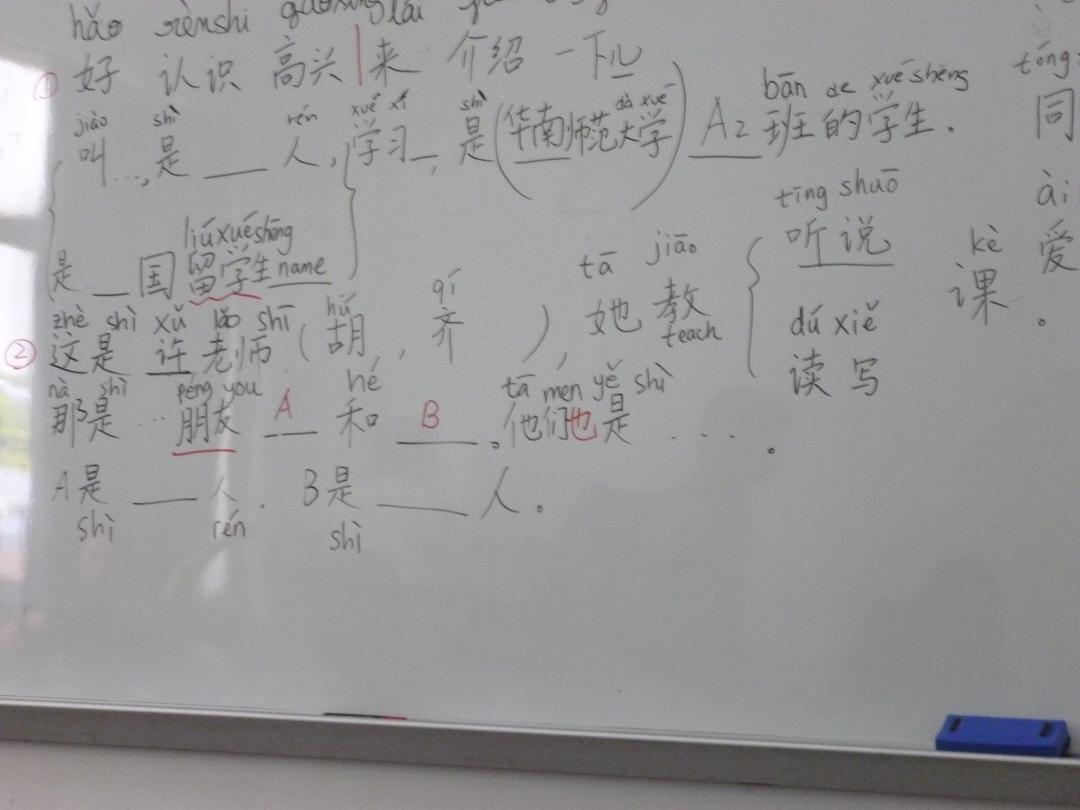 hǎo rènshi gāoxìng lái
① 好 认识 高兴 | 来 介绍 一下儿
jiào shì rén xué xí shì dà xué bān de xuéshēng tóng
叫...,是 ___ 人,学习_,是(华南师范大学) A2 班的学生. 同
liúxuéshēng tīng shuō ài
是 __ 国留学生name 听说 kè 爱
zhè shì xǔ lǎo shī hú qí tā jiāo 课
② 这是 许老师 (胡,,齐 ), 她教 teach dú xiě 。
nà shì péng you hé tā men yě shì 读写
那是 ... 朋友 A 和 B 。他们也是 ....。
A是 ___ 人. B是 ___ 人。
shì rén shì